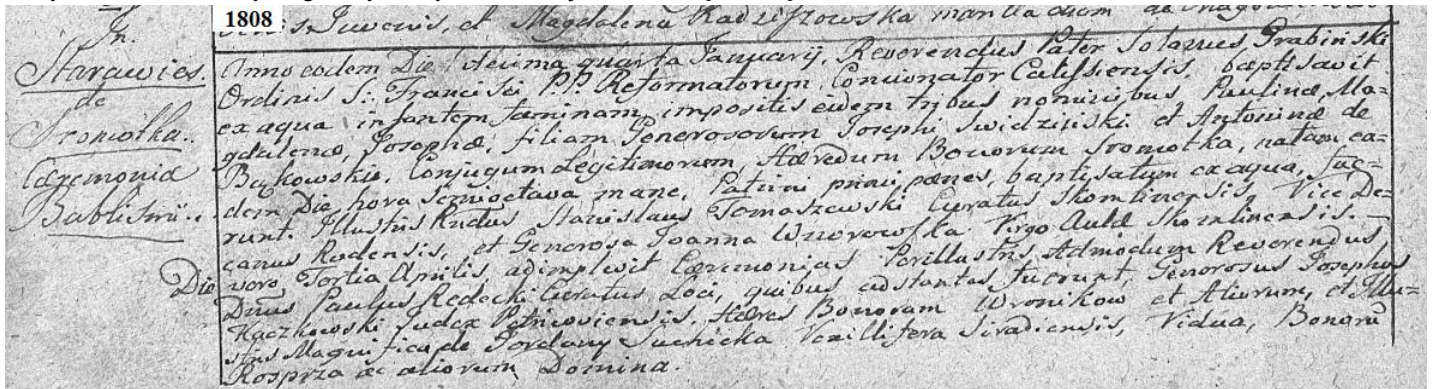 1808
In
Starawies.
de
Sromotka.
Cæremonia
Babtismi.
et Magdalena Radziszowska
Anno eodem Die decima quarta Januarij, Reverendus Pater Solanus Grabinski
Ordinis S: Francisci PP. Reformatorum, Concionator Calissiensis, baptisavit
ex aqua infantem fæminam, impositis eidem tribus nominibus Paulinæ, Ma=
gdalenæ, Josephæ, filiam Generosorum Josephi Swidzinski et Antoninæ de
Bąkowskie, Conjugum Legitimorum, Hæredum Bonorum Sromotka, natam ea=
dem Die hora Semioctava mane, Patrini primi pænes, baptisatum ex aqua, fue=
runt. Illustris Rndus Stanislaus Tomaszewski Curatus Skomlinensis, Vice De=
canus Rudensis, et Generosa Joanna Virgo Aulæ Skomlinensis. —
Die vero Tertia Aprilis, adimplevit Cæremonias Perillustris Admodum Reverendus
Dnus Paulus Redecki Curatus Loci, quibus adstantes fuerunt, Generosus Josephus
Kaczkowski Judex Petricoviensis, Hæres Bonorum Wronikow et Aliorum, et Illu=
stris Magnifica de Jordany Suchicka Vexillifera Siradiensis, Vidua, Bonorũ
Rosprza ac aliorum Domina.